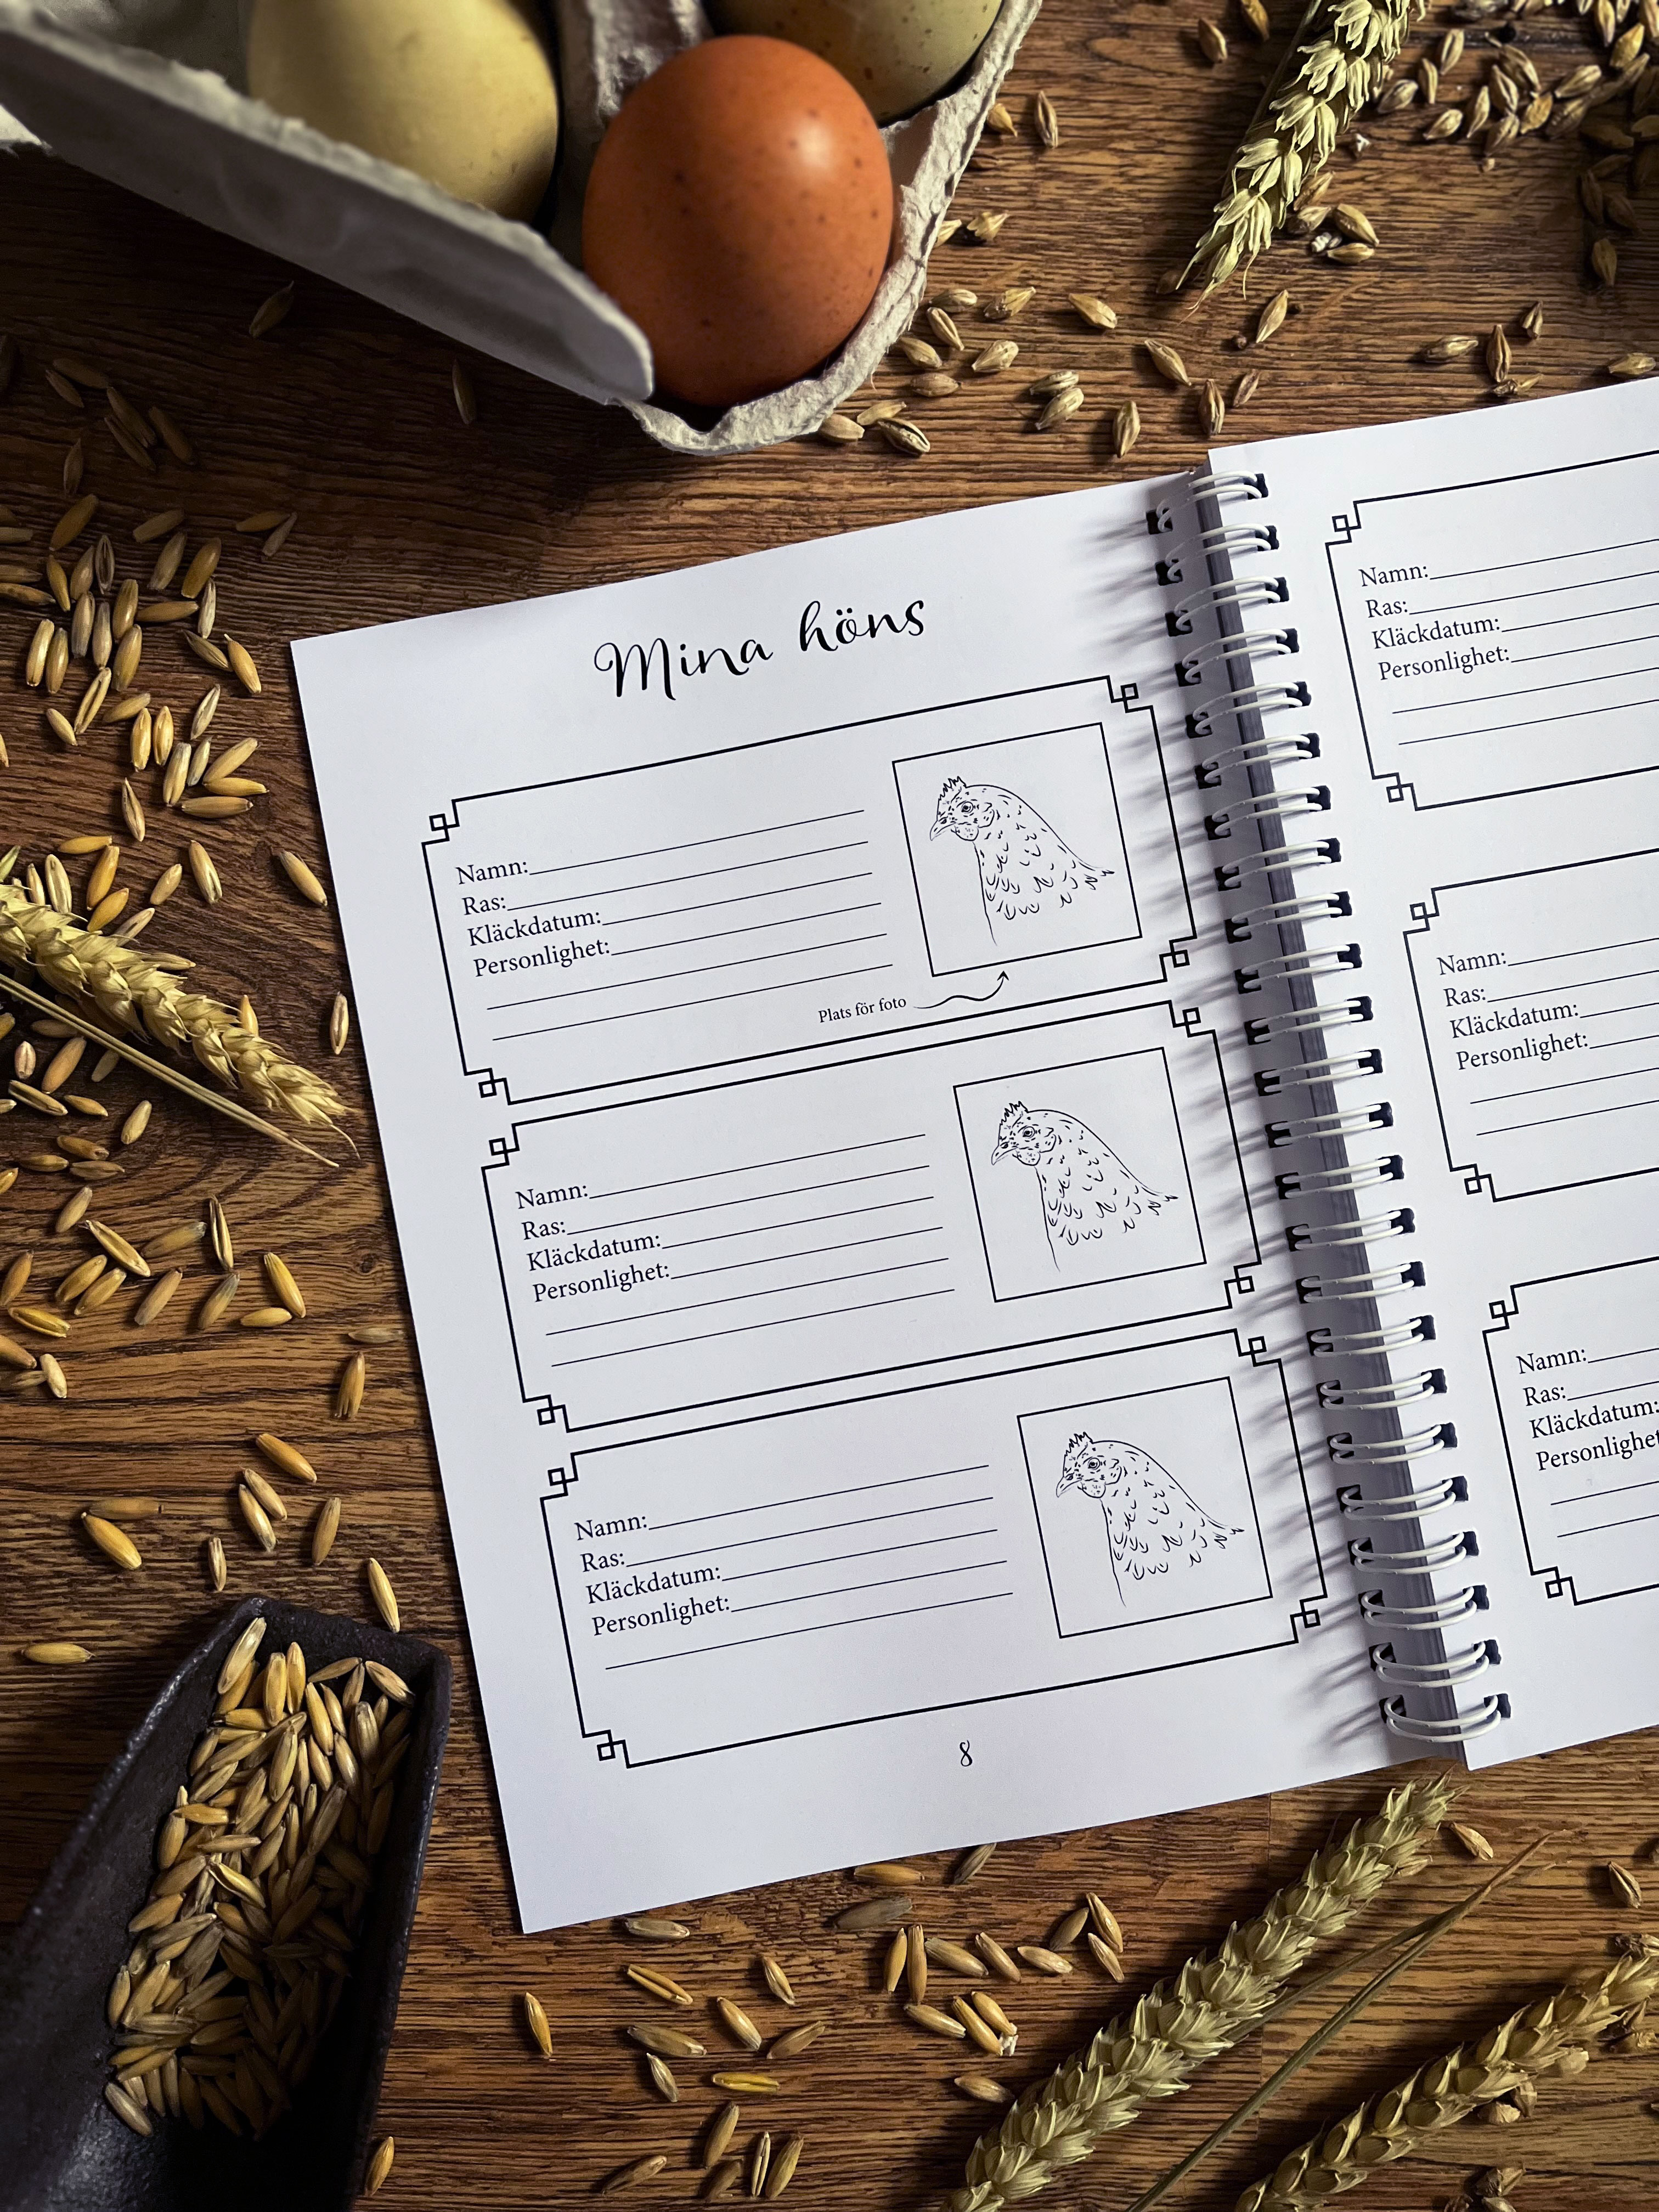 Mina höns
Namn:
Ras:
Kläckdatum:
Personlighet:
Plats för foto
Namn:
Ras:
Kläckdatum:
Personlighet:
Namn:
Ras:
Kläckdatum:
Personlighet:
8
Namn:
Ras:
Kläckdatum:
Personlighet:
Namn:
Ras:
Kläckdatum:
Personlighet:
Namn:
Ras:
Kläckdatum:
Personlighet